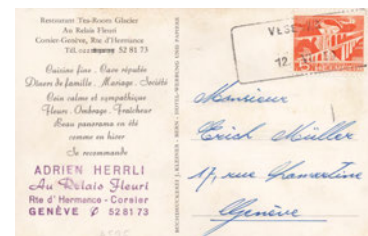 Restaurant Tea-Room Glacier
Au Relais Fleuri
Corsier-Genève, Rte d'Hermance
Tél. 52 81 73
Cuisine fine . Cave réputée
Dîners de famille . Mariage . Société
Coin calme et sympathique
Fleurs . Ombrage . Fraîcheur
Beau panorama en été
comme en hiver
Se recommande
ADRIEN HERRLI
Au Relais Fleuri
Rte d'Hermance - Corsier
GENÈVE ∅ 52 81 73
VESE
12.
HELVETIA
Monsieur
Erich Müller
17, rue Lamartine
Genève